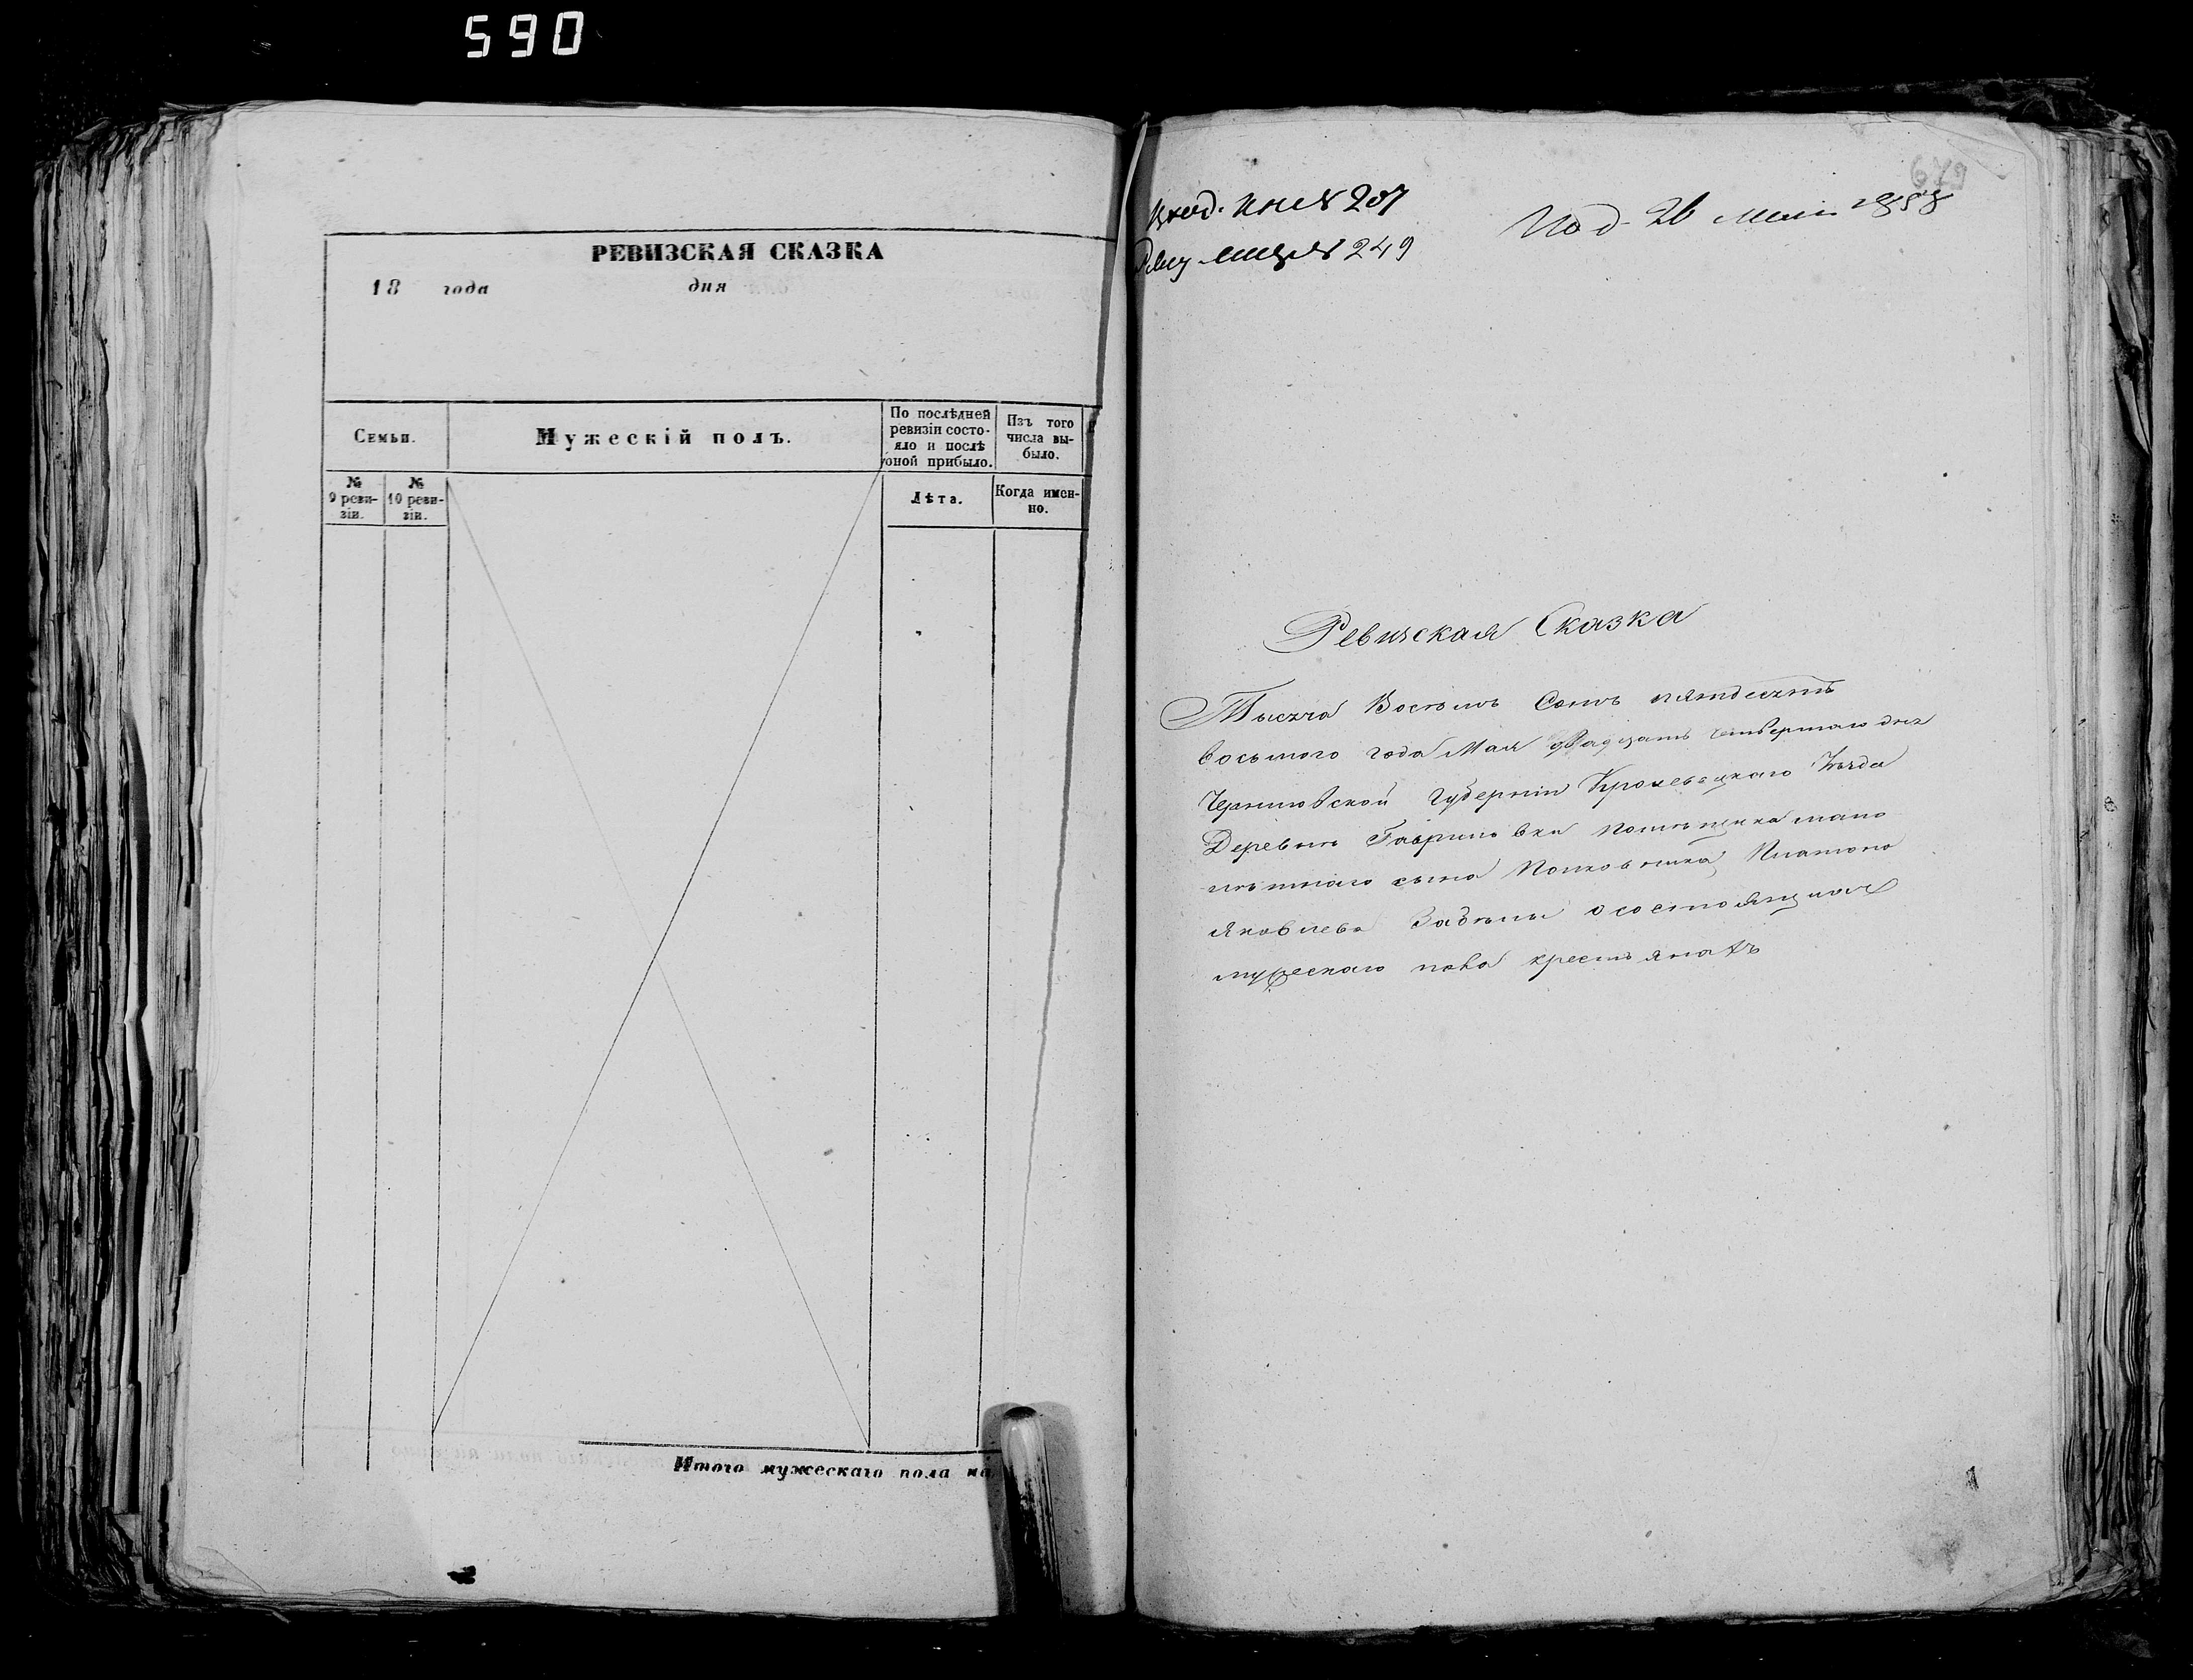 590
РЕВИЗСКАЯ СКАЗКА
18 года дня
Семьи.
Мужескій полъ.
По послѣдней ревизіи состо-
яло и послѣ
оной прибыло.
Изъ того
числа вы-
было.
№
9 реви-
зіи.
№
10 реви-
зіи.
Лѣта.
Когда имен-
но.
Итого мужескаго пола на
679
№ 207
№ 249
Под. 26 мая 1858
Ревизская Сказка
Тысяча Восемь Сотъ пятдесятъ
восьмого года Мая двадцать четвертаго дня
Черниговской Губерніи Кролевецкаго Уѣзда
Деревни Гавриловки помѣщика мало
лѣтнаго сына Полковника Платона
Яковлева Забѣлы о состоящихъ
мужескаго пола крестьянахъ
1